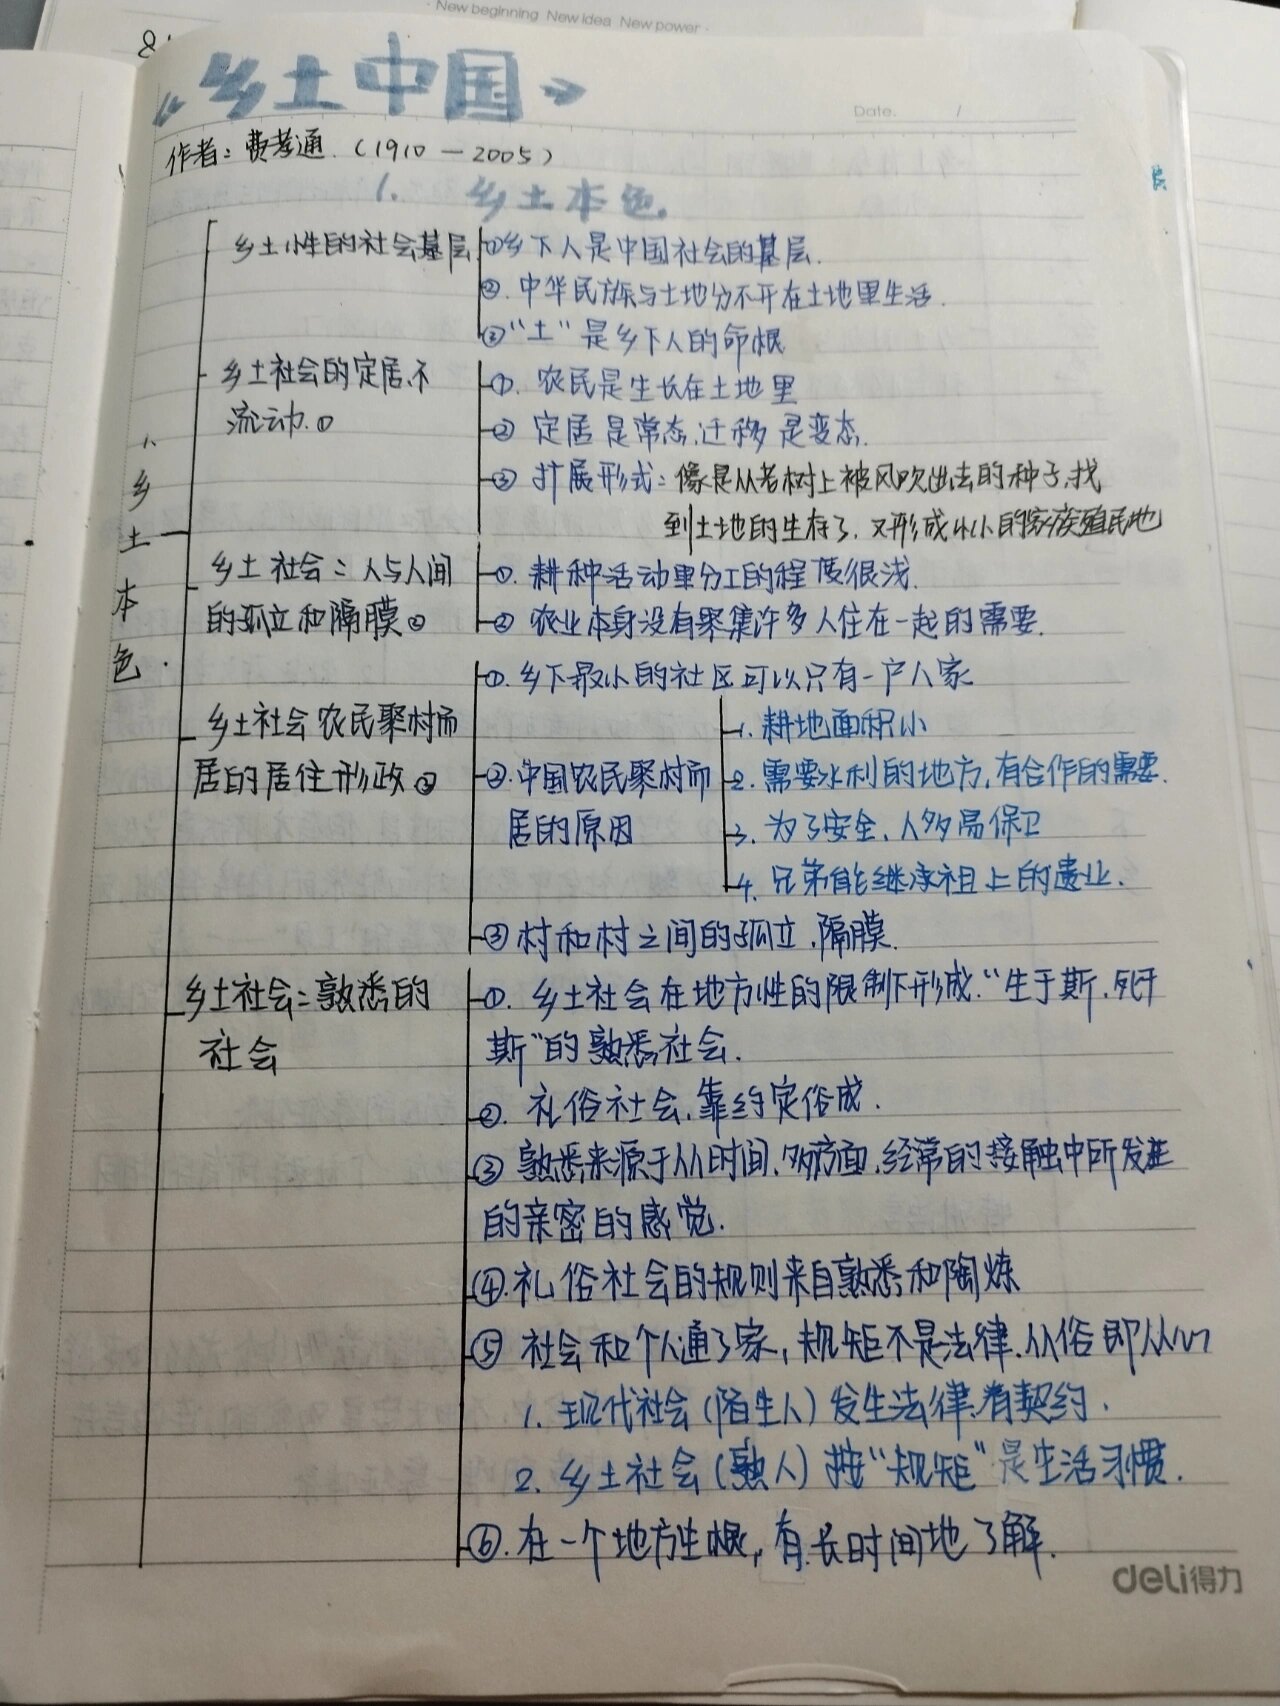 New beginning New idea New power
《乡土中国》
Date. /
作者：费孝通.（1910—2005）
1. 乡土本色.
1、乡土本色.
乡土性的社会基层
①乡下人是中国社会的基层.
②.中华民族与土地分不开在土地里生活.
③“土”是乡下人的命根
乡土社会的定居.不
流动.①
①.农民是生长在土地里
②定居是常态.迁移是变态.
③扩展形式：像是从老树上被风吹出去的种子.找
到土地的生存了.又形成小小的家族殖民地
乡土社会：人与人间
的孤立和隔膜②
①.耕种活动里分工的程度很浅.
②农业本身没有聚集许多人住在一起的需要.
乡土社会农民聚村而
居的居住形政③
①.乡下最小的社区可以只有一户人家
②.中国农民聚村而
居的原因
1.耕地面积小
2.需要水利的地方,有合作的需要.
3.为了安全.人多易保卫
4.兄弟能继承祖上的遗业.
③村和村之间的孤立.隔膜.
乡土社会：熟悉的
社会
①.乡土社会在地方性的限制下形成.“生于斯.死于
斯”的熟悉社会.
②.礼俗社会.靠约定俗成.
③熟悉来源于从时间.多方面.经常的接触中所发生
的亲密的感觉.
④.礼俗社会的规则来自熟悉和陶炼
⑤社会和个人通了家,规矩不是法律.从俗即从心
1.现代社会(陌生人)发生法律.有契约.
2.乡土社会(熟人)按“规矩”是生活习惯.
⑥.在一个地方生根,有长时间地了解.
deli得力